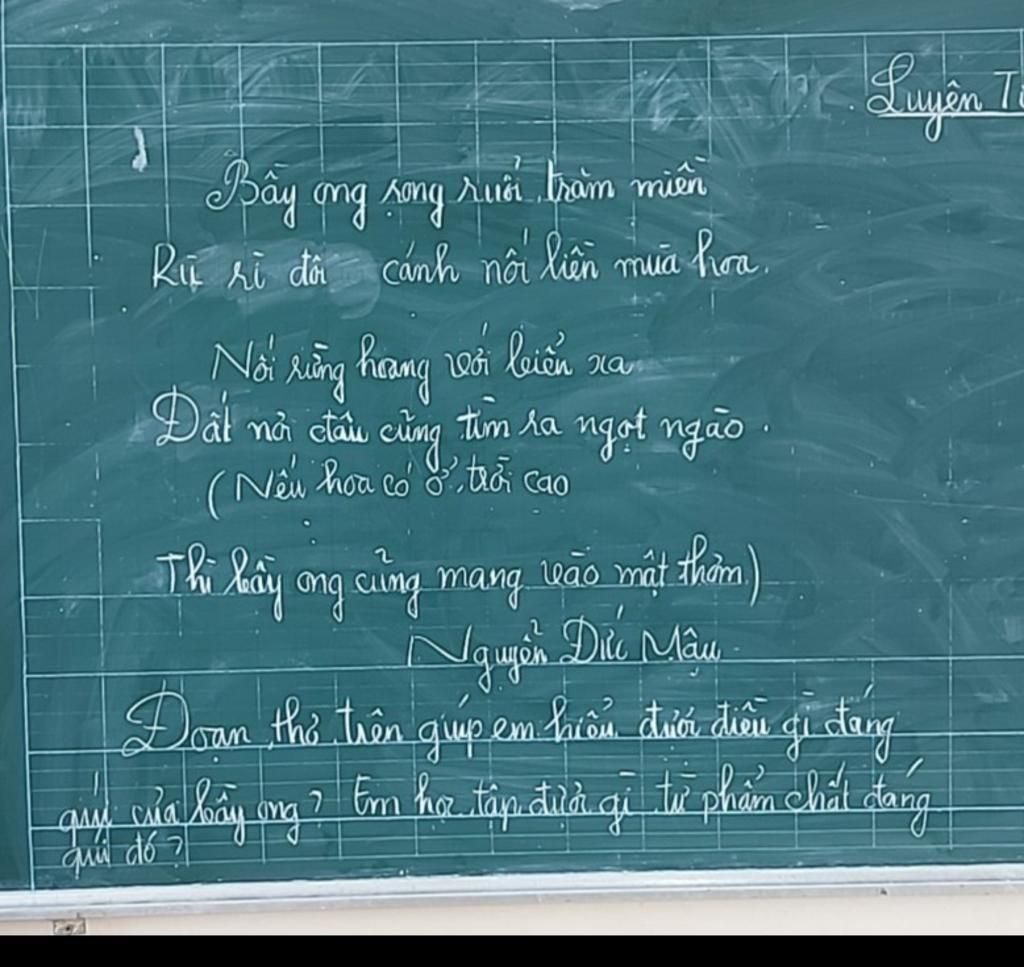 Luyện T
Bầy ong rong ruổi trăm miền
Rù rì đôi cánh nối liền mùa hoa.
Nối rừng hoang với biển xa
Đất nơi đâu cũng tìm ra ngọt ngào.
(Nếu hoa có ở trời cao
Thì bầy ong cũng mang vào mật thơm)
Nguyễn Đức Mậu
Đoạn thơ trên giúp em hiểu được điều gì đáng
quý của bầy ong? Em học tập được gì từ phẩm chất đáng
quí đó?